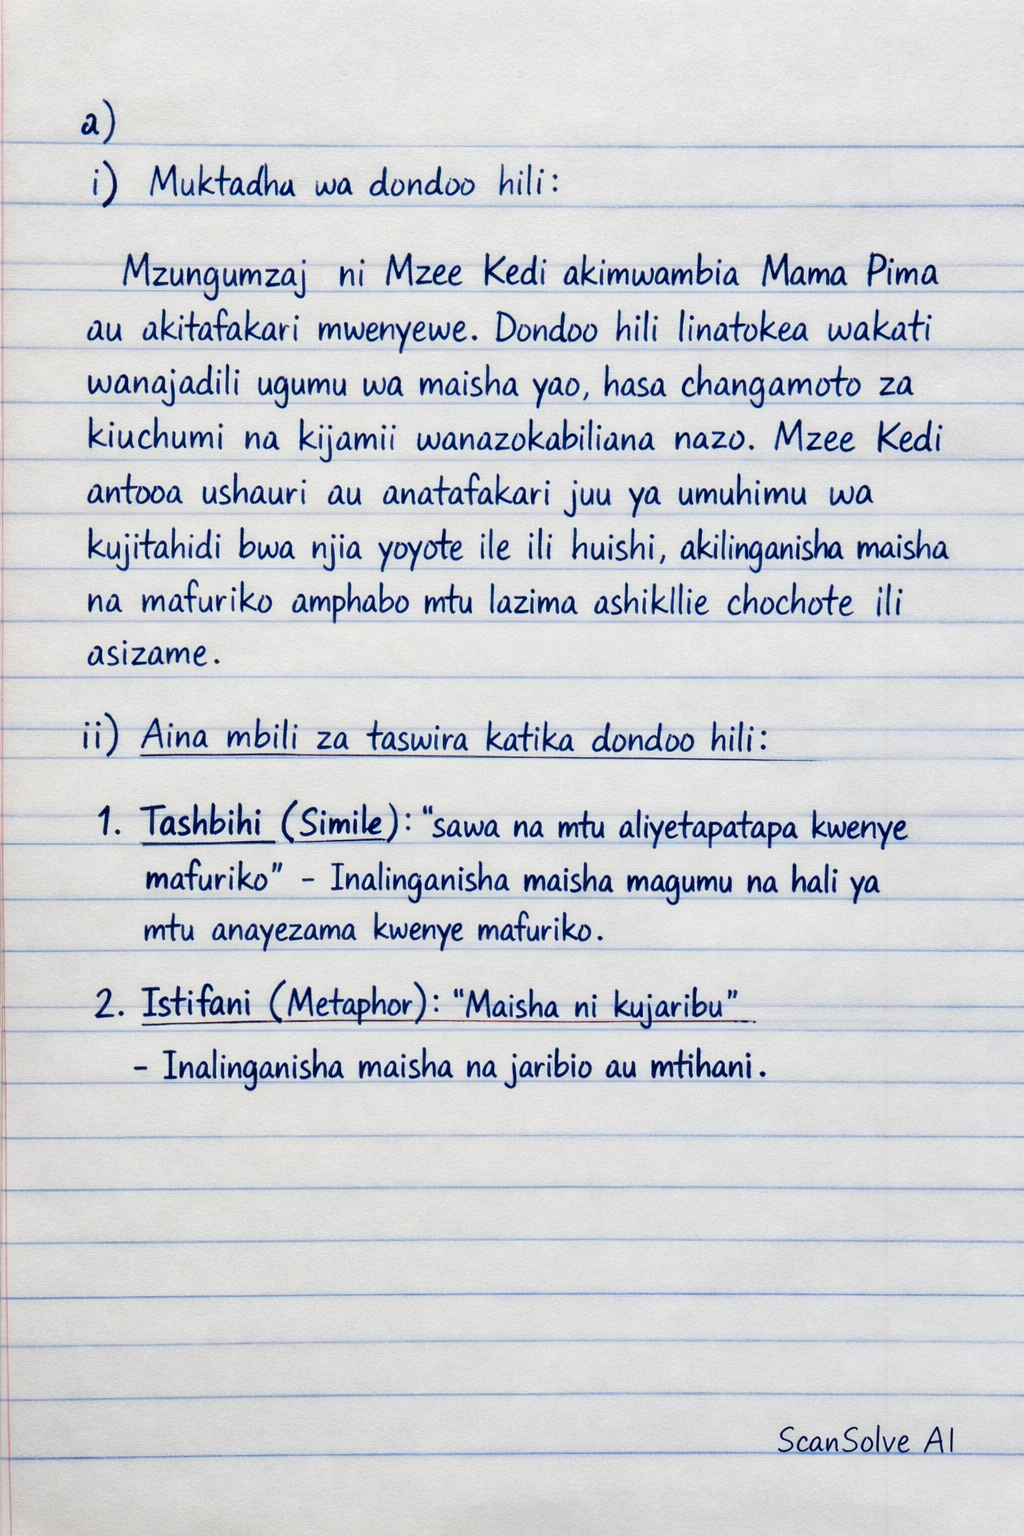 a)
i) Muktadha wa dondoo hili:
Mzungumzaj ni Mzee Kedi akimwambia Mama Pima
au akitafakari mwenyewe. Dondoo hili linatokea wakati
wanajadili ugumu wa maisha yao, hasa changamoto za
kiuchumi na kijamii wanazokabiliana nazo. Mzee Kedi
antooa ushauri au anatafakari juu ya umuhimu wa
kujitahidi bwa njia yoyote ile ili huishi, akilinganisha maisha
na mafuriko amphabo mtu lazima ashikllie chochote ili
asizame.
ii) Aina mbili za taswira katika dondoo hili:
1. Tashbihi (Simile): "sawa na mtu aliyetapatapa kwenye
mafuriko" - Inalinganisha maisha magumu na hali ya
mtu anayezama kwenye mafuriko.
2. Istifani (Metaphor): "Maisha ni kujaribu"
- Inalinganisha maisha na jaribio au mtihani.
ScanSolve AI